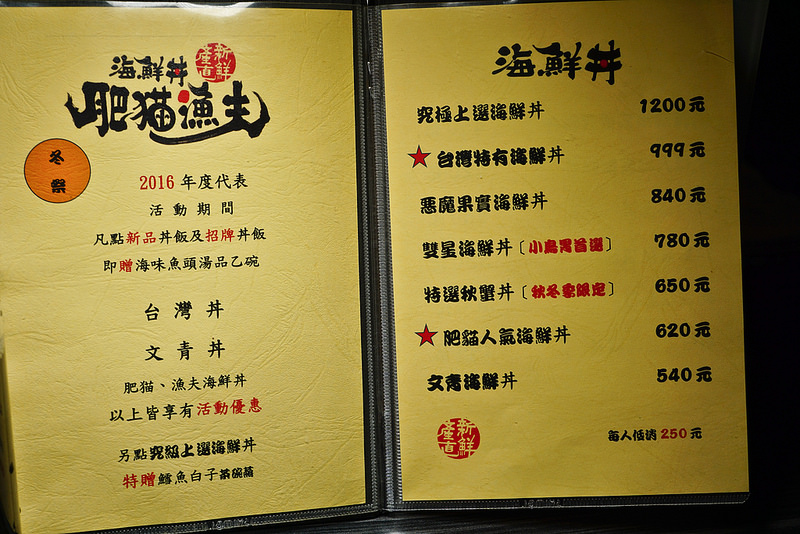 海鮮丼
新鮮
產直
肥猫漁夫
冬祭
2016 年度代表
活動期間
凡點新品丼飯及招牌丼飯
即贈海味魚頭湯品乙碗
台灣丼
文青丼
肥猫、漁夫海鮮丼
以上皆享有活動優惠
另點究級上選海鮮丼
特贈鱈魚白子茶碗蒸
海鮮丼
究極上選海鮮丼 1200元
★台灣特有海鮮丼 999元
悪魔果實海鮮丼 840元
雙星海鮮丼〔小鳥胃首選〕 780元
特選秋蟹丼〔秋冬季限定〕 650元
★肥貓人氣海鮮丼 620元
文青海鮮丼 540元
新鮮
產直
每人低消 250元